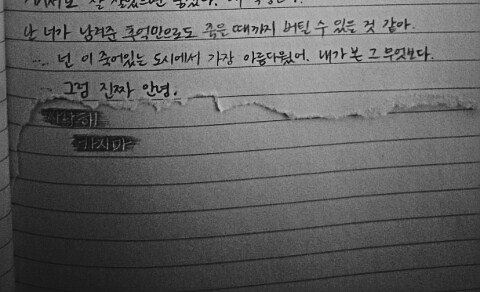 잘
난 너가 남겨준 추억만으로도 죽을때까지 버틸 수 있을 것 같아.
... 넌 이 죽어있는 도시에서 가장 아름다웠어. 내가 본 그 무엇보다.
... 그럼 진짜 안녕.
사랑해
가지마